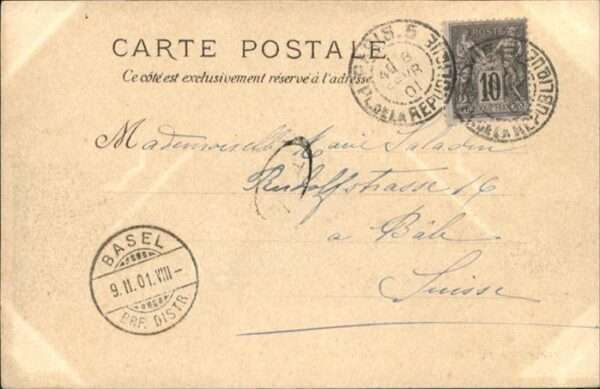 CARTE POSTALE
Ce côté est exclusivement réservé à l'adresse
PARIS 5
PL. DE LA REPUBLIQUE
FEVR
01
10
Mademoiselle Marie Saladin
Rudolfstrasse 16
à Bâle
Suisse
BASEL
9.II.01.VIII-
BRF. DISTR.